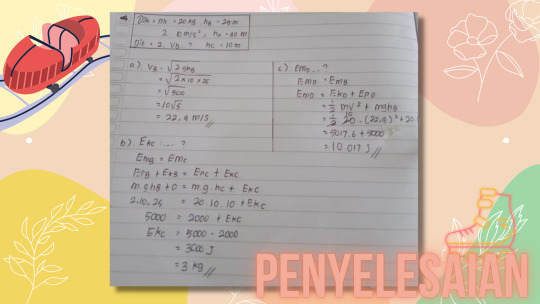 Dik = mb = 20 kg, hB = 25 m
2 10 m/s², hD = 40 m
Dit = 2. VD ? hc = 10 m
a). VB = √2ghB
= √2×10×25
= √500
= 10√5
= 22,4 m/s
b). Ekc .... ?
EmB = Emc
EPB + EKB = EPC + EKC
m.g.hB + 0 = m.g.hc + EKC
2.10.25 = 20.10.10 + EKC
5000 = 2000 + EKC
EKC = 5000 - 2000
= 3000 J
= 3 kg
c). EmD ... ?
EmD = EmB
EmD = EKD + EPD
= ½ mv² + mghB
= ½ 20 10 . (22,4)² + 20.
= 5017.6 + 5000
= 10.017 J
PENYELESAIAN